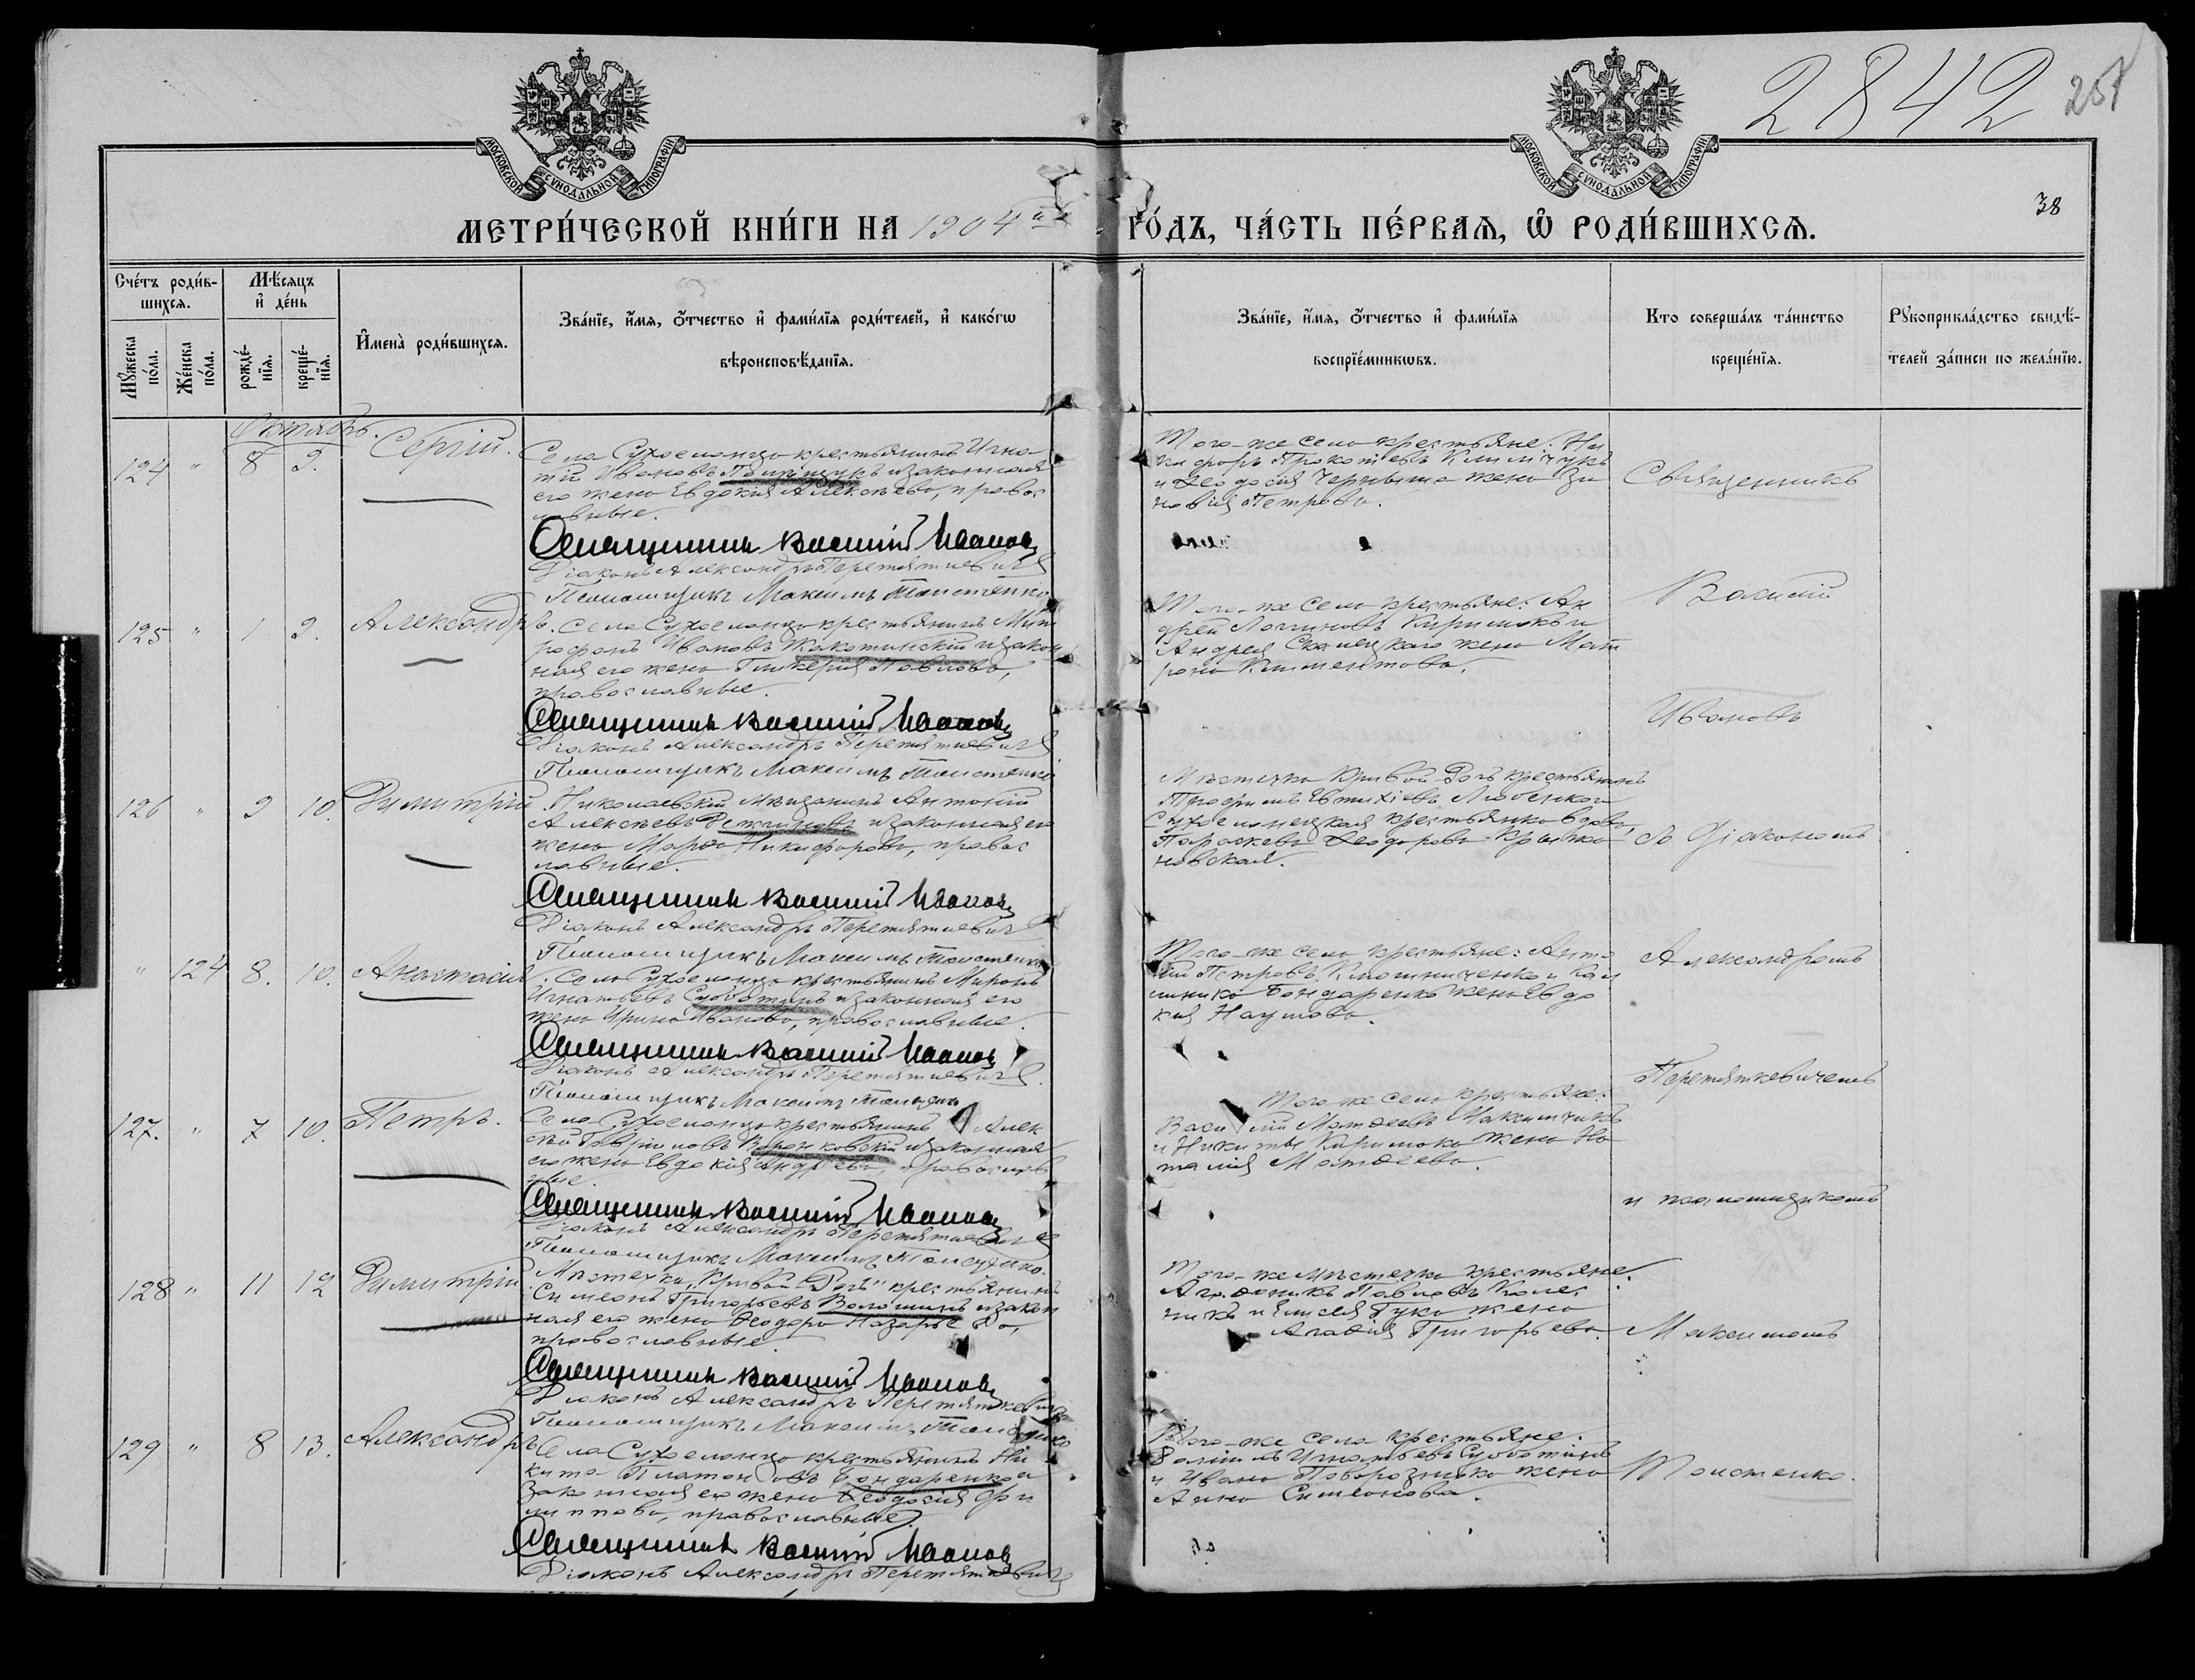 2842
257
МОСКОВСКОЙ СѴНОДАЛЬНОЙ ТИПОГРАФІИ
МОСКОВСКОЙ СѴНОДАЛЬНОЙ ТИПОГРАФІИ
38
МЕТРИ́ЧЕСКОЙ КНИ́ГИ НА 1904 й
ГО́ДЪ, ЧА́СТЬ ПЕ́РВАѦ, Ѽ РОДИ́ВШИХСѦ.
Сче́тъ роди́вшихсѧ.
Мꙋ́жеска по́ла.
Же́нска по́ла.
Мѣ́сѧцъ и҆ де́нь
рожде́нїѧ.
креще́нїѧ.
И҆мена̀ роди́вшихсѧ.
Зва́нїе, и҆́мѧ, ѻ҆́тчество и҆ фами́лїѧ роди́телей, и҆ како́гѡ
вѣроисповѣ́данїѧ.
Зва́нїе, и҆́мѧ, ѻ҆́тчество и҆ фами́лїѧ
воспрїе́мникѡвъ.
Кто соверша́лъ та́инство
креще́нїѧ.
Рꙋкоприкла́дство свидѣ́-
телей за́писи по жела́нїю.
Октябрь.
124 " 8 9. Сергій.
Села Сухоеланца крестьянинъ Игна-
тій Ивановъ и законная
его жена Евдокія Алексѣева, правос
лавные.
Священникъ Василій Ивановъ
Діаконъ Александръ Перетяткевичъ
Псаломщикъ Максимъ Толстенко
Того-же села крестьяне: Ни
кифоръ Прокопіевъ Климчукъ
и Ѳеодосія Черныша жена Зи
новія Петрова.
Священникъ
125 " 1 9. Александръ.
Села Сухоеланца крестьянинъ Мит
рофанъ Ивановъ и закон
ная его жена Гликерія Павлова,
православные.
Священникъ Василій Ивановъ
Діаконъ Александръ Перетяткевичъ
Псаломщикъ Максимъ Толстенко
Того-же села крестьяне: Ан
дрей Логиновъ Кирилюкъ и
Андрея жена Мат
рона Климентова.
Василій
Ивановъ
126 " 9 10. Димитрій
Николаевскій мѣщанинъ Антоній
Алексѣевъ и законная его
жена Марѳа Никифорова, правос
лавные.
Священникъ Василій Ивановъ
Діаконъ Александръ Перетяткевичъ
Псаломщикъ Максимъ Толстенко
Мѣстечка Кривой-Рогъ крестьянинъ
Трофимъ Евтихіевъ и
Сухоеланецкая крестьянка вдова
Параскева Ѳеодорова
новская.
съ Діакономъ
" 124 8. 10. Анастасія
Села Сухоеланца крестьянинъ Миронъ
Игнатьевъ Субботинъ и законная его
жена Ирина Иванова, православные.
Священникъ Василій Ивановъ
Діаконъ Александръ Перетяткевичъ
Псаломщикъ Максимъ
Того-же села крестьяне: Анто
ній Петровъ и Кал
линика Бондаренко жена Евдо
кія Наумова.
Александромъ
Перетяткевичемъ
127. " 7 10. Петръ.
Села Сухоеланца крестьянинъ Алек
сѣй Гавріиловъ и законная
его жена Евдокія Андреева, православ
ные.
Священникъ Василій Ивановъ
Діаконъ Александръ Перетяткевичъ
Псаломщикъ Максимъ Толстенко.
Того-же села крестьяне:
Василій Матѳеевъ Максимчукъ
и Никиты Кирилюка жена На
талія Матѳеева.
и псаломщикомъ
128 " 11 12 Димитрій
Мѣстечка "Кривой Рогъ" крестьянинъ
Симеонъ Григорьевъ Волошинъ и закон
ная его жена Ѳеодора Назарьева,
православные.
Священникъ Василій Ивановъ
Діаконъ Александръ Перетяткевичъ
Псаломщикъ Максимъ Толстенко
Того-же мѣстечка крестьяне:
Агаѳоникъ Павловъ Колес
никъ и Елисея Гука жена
Агаѳія Григорьева.
Максимомъ
129 " 8 13. Александръ
Села Сухоеланца крестьянинъ Ни
кита Платоновъ Бондаренко и
законная его жена Ѳеодосія Фи
липпова, православные.
Священникъ Василій Ивановъ
Діаконъ Александръ Перетяткевичъ
Того-же села крестьяне:
Игнатьевъ Субботинъ
и Ивана Поворознюка жена
Анна Симеонова.
Толстенко.